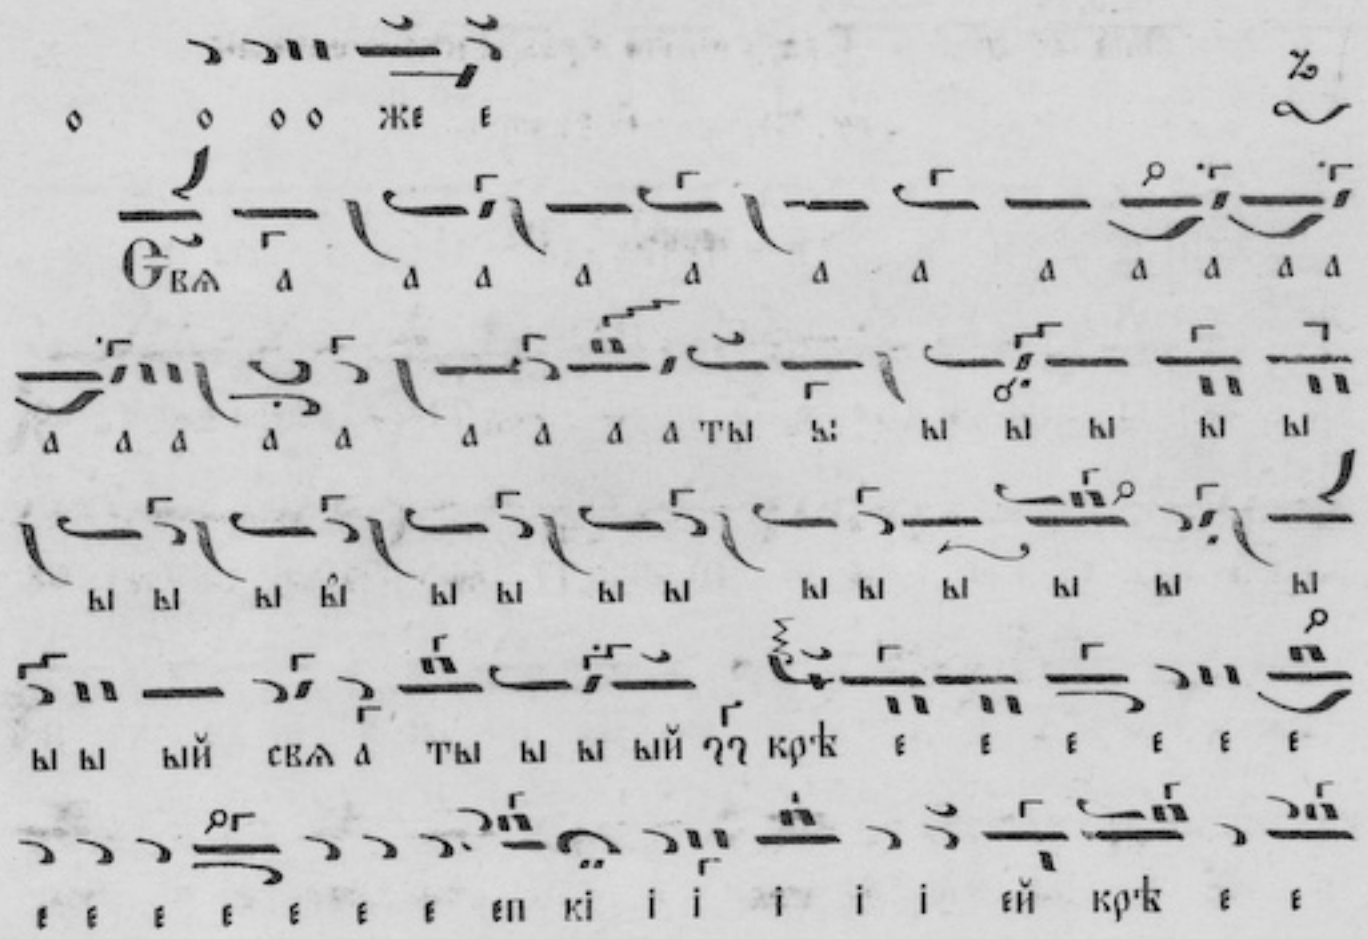 о о о о же е
Свѧ а а а а а а а а а а а а
а а а а а а а а а ты ы ы ы ы ы ы
ы ы ы ы ы ы ы ы ы ы ы ы ы ы
ы ы ый свѧ а ты ы ы ый крѣ е е е е е е
е е е е е е е еп кі і і і і і ей крѣ е е